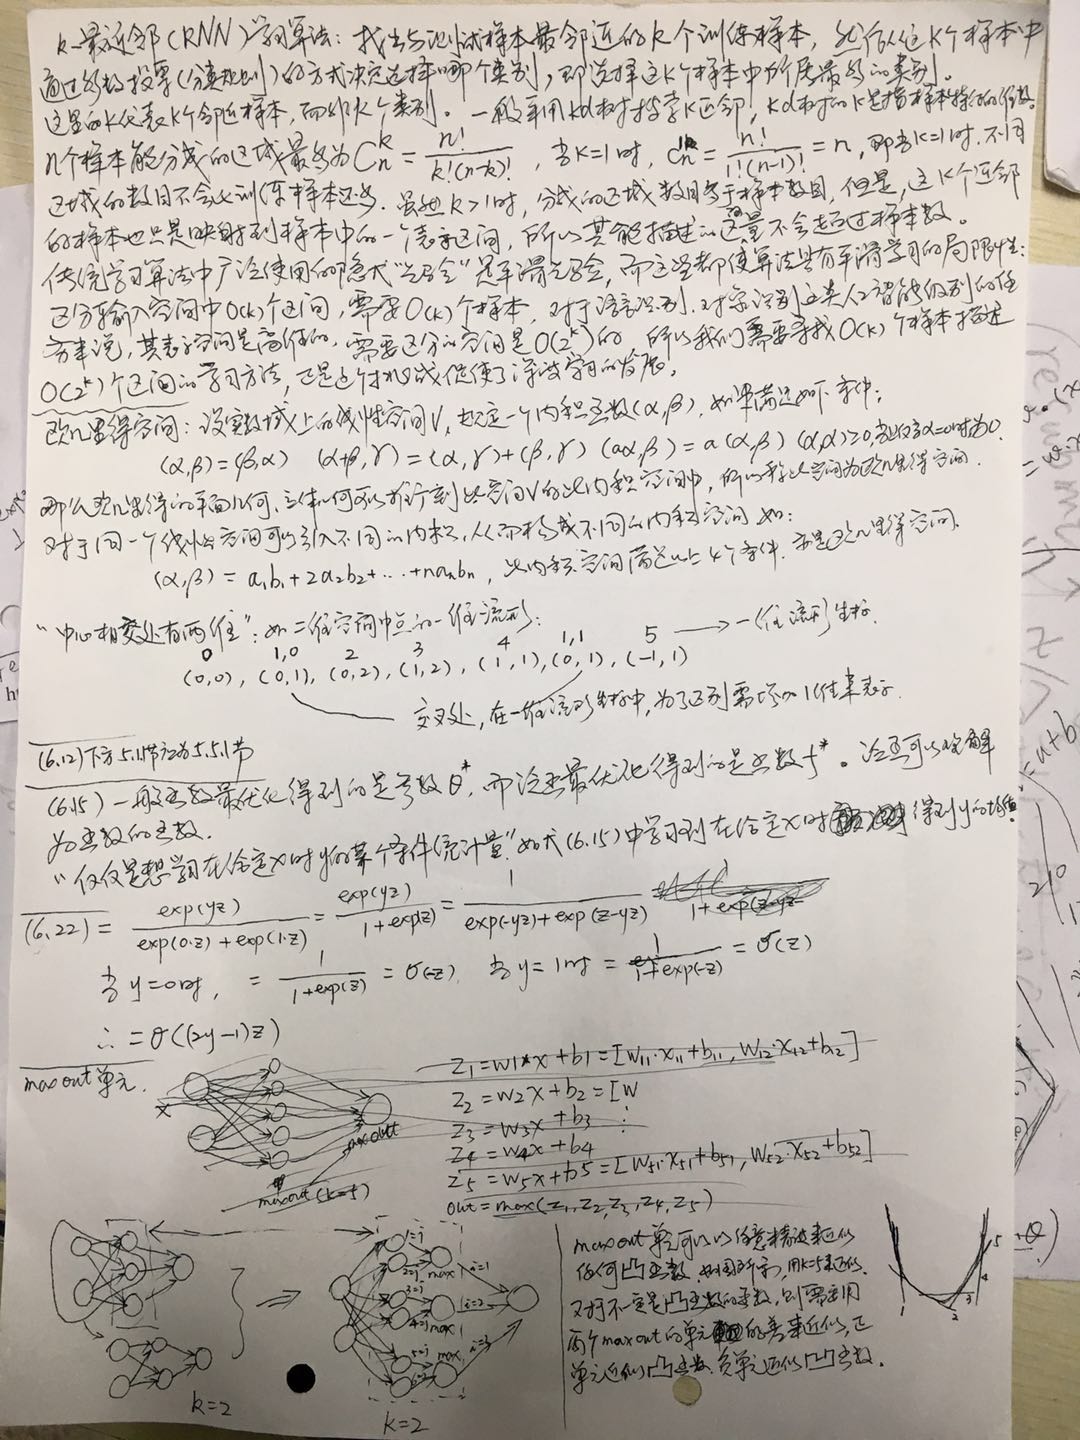 k-最近邻(RNN)学习算法：找出与测试样本最邻近的k个训练样本，然后从这K个样本中
通过多数投票(分类规则)的方式决定选择哪个类别，即选择这K个样本中所属最多的类别。
这里的K代表K个邻近样本，而非K个类别。一般采用kd树搜索K近邻，kd树的k是指样本特征的维数。
n个样本能分成的区域最多为 C_n^k = n!/(k!(n-k)!)，当k=1时，C_n^1 = n!/(1!(n-1)!) = n，即当k=1时，不同
区域的数目不会比训练样本还多。虽然k>1时，分成的区域数目多于样本数目，但是，这K个近邻
的样本也只是映射到样本中的一个表示区间，所以其能描述的容量不会超过样本数。
传统学习算法中广泛使用的隐式"先验"是平滑先验，而这些都使算法具有平滑学习的局限性：
区分输入空间中O(k)个区间，需要O(k)个样本。对于语音识别、对象识别这类人工智能级别的任
务来说，其表示空间是高维的，需要区分的空间是O(2^k)的 所以我们需要寻找O(k)个样本描述
O(2^k)个区间的学习方法，正是这个挑战促使了深度学习的发展。
欧几里得空间：设实数域上的线性空间V，规定一个内积函数(α,β)，如果满足如下条件：
(α,β)=(β,α) (α+β,γ)=(α,γ)+(β,γ) (aα,β)=a(α,β) (α,α)≥0,当且仅当α=0时为0.
那么欧几里得的平面几何、立体几何可以推广到此空间V的此内积空间中，所以称此空间为欧几里得空间.
对于同一个线性空间可以引入不同的内积，从而构成不同的内积空间 如：
(α,β)=a₁b₁+2a₂b₂+…+naₙbₙ，此内积空间满足以上4个条件，亦是欧几里得空间.
"中心相交处有两维"：如二维空间中点的一维流形：
0 1,0 2 3 4 1,1 5 → 一维流形坐标.
(0,0), (0,1), (0,2), (1,2), (1,1), (0,1), (-1,1)
交叉处，在一维流形坐标中，为了区别需增加1维来表示.
(6.12)下方5.1.1节应为5.5.1节
(6.15) 一般函数最优化得到的是参数θ*，而泛函最优化得到的是函数f*。泛函可以理解
为函数的函数.
"仅仅是想学习在给定x时y的某个条件统计量"如式(6.15)中学习到在给定x时 得到y的均值
(6.22) = exp(yz)/(exp(0·z)+exp(1·z)) = exp(yz)/(1+exp(z)) = 1/(exp(-yz)+exp(z-yz))
当y=0时， = 1/(1+exp(z)) = σ(-z) 当y=1时 = 1/(1+exp(-z)) = σ(z)
∴ = σ((2y-1)z)
maxout单元.
x
maxout
maxout(k=5)
z₁=w1*x+b1=[w₁₁·x₁₁+b₁₁, w₁₂·x₁₂+b₁₂]
z₂=w₂x+b₂=[w
z₃=w₃x+b₃ ⋮
z₄=w₄x+b₄
z₅=w₅x+b5=[w₅₁·x₅₁+b₅₁, w₅₂·x₅₂+b₅₂]
out=max(z₁,z₂,z₃,z₄,z₅)
k=2
⇒
max i=1
max i=2
max i=3
k=2
maxout单元可以以任意精度来近似
任何凸函数，如图所示，用k=5来近似.
对于不一定是凸函数的函数，则需要用
两个maxout的单元的差来近似，正
单元近似凸函数，负单元近似凹函数。
1 2 3 4 5